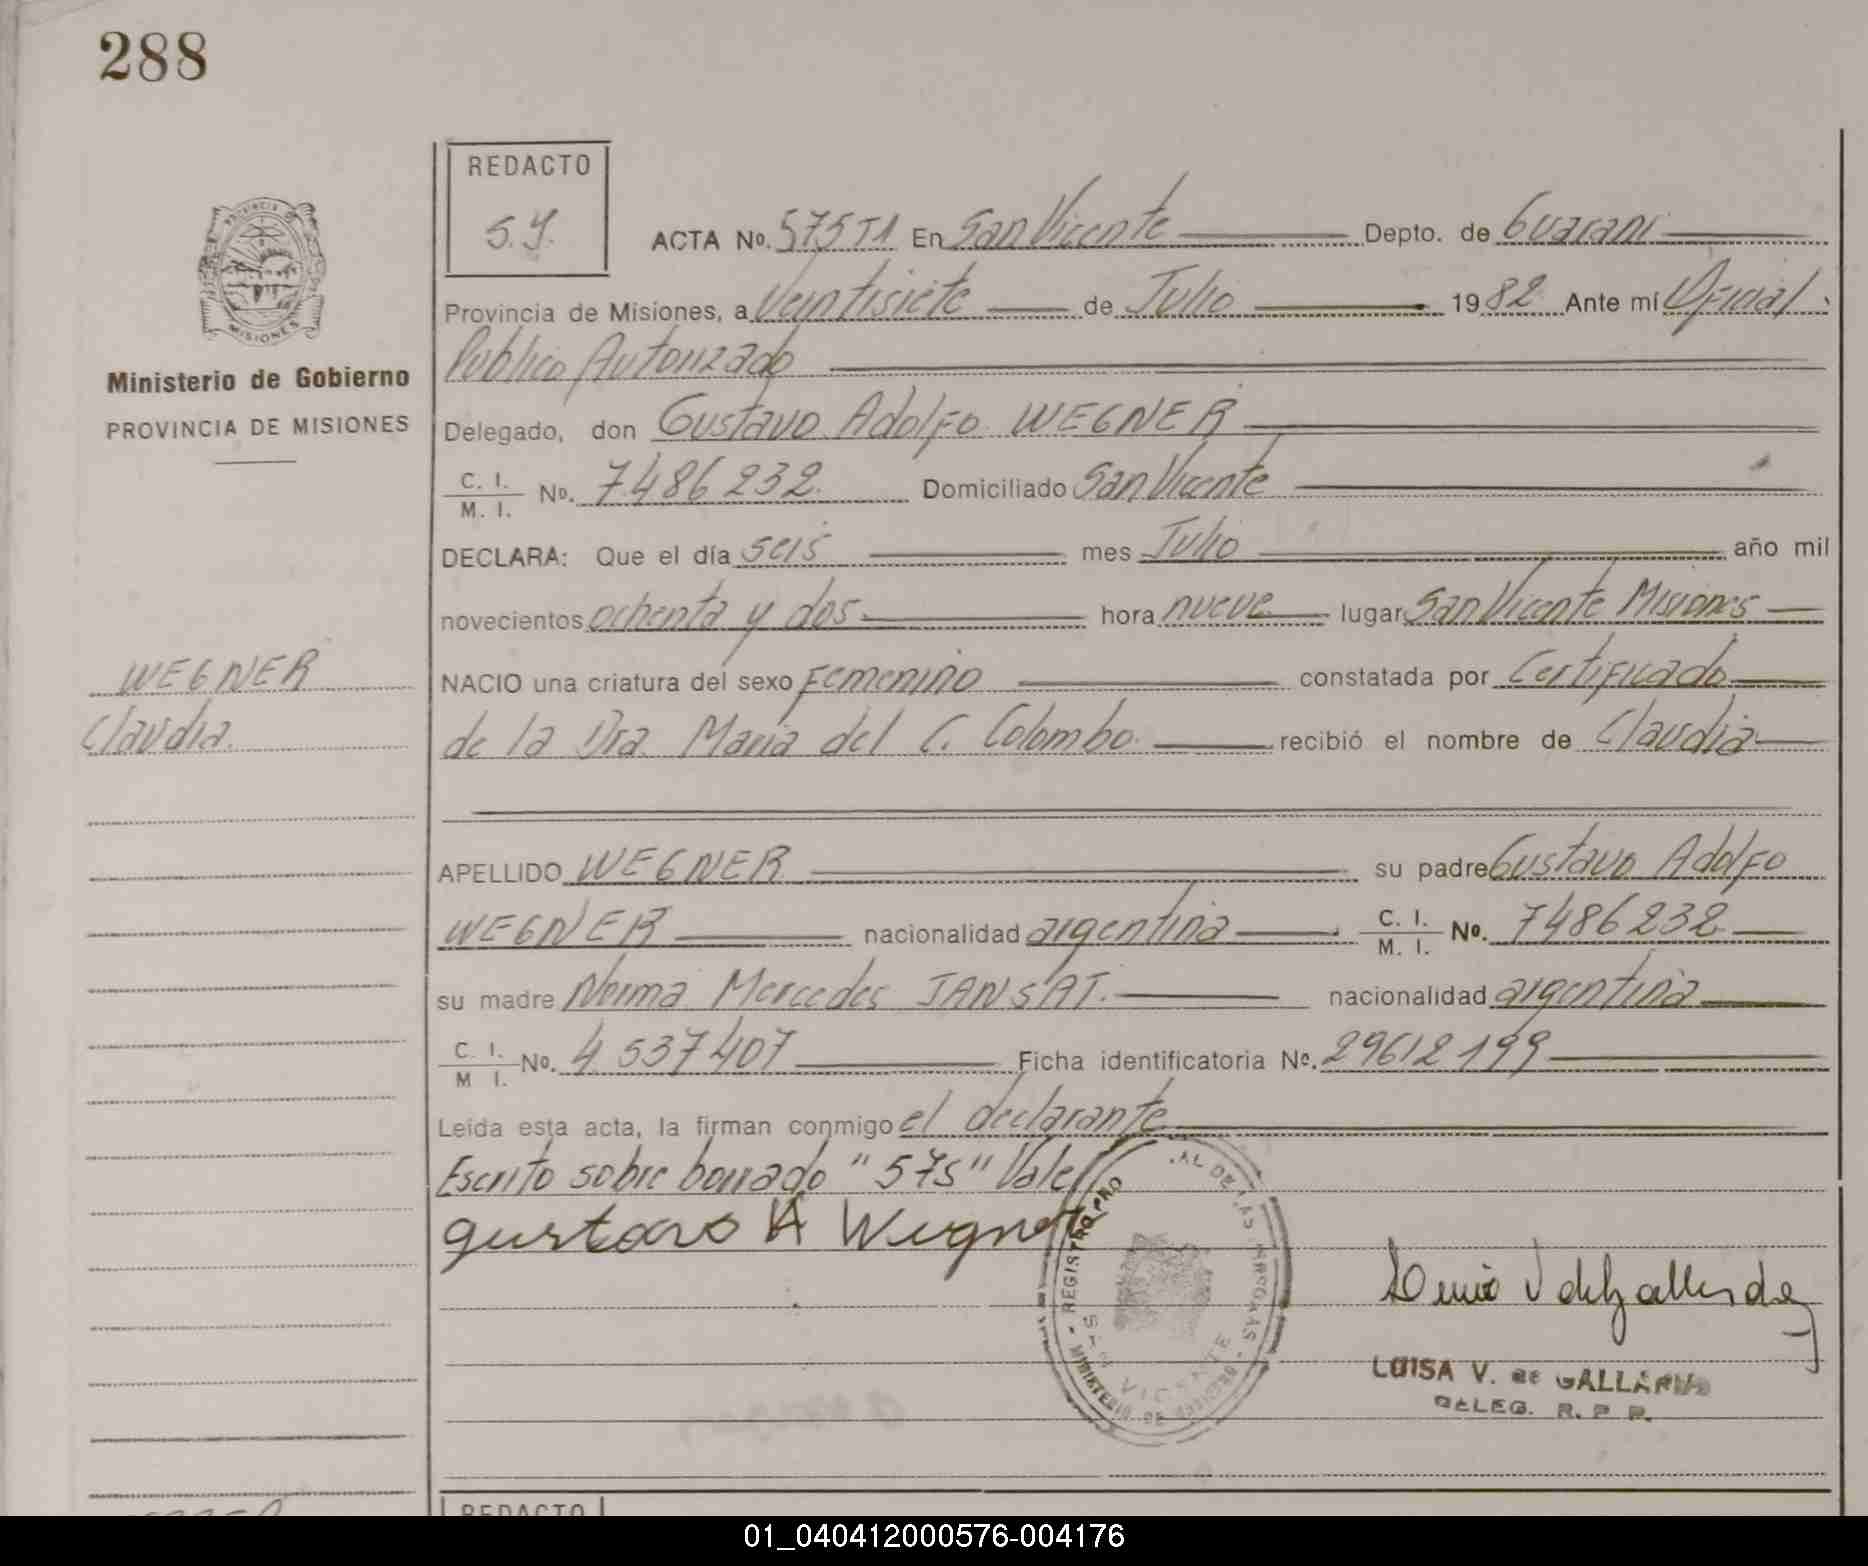 288
REDACTO
S.Y.
PROVINCIA DE
MISIONES
Ministerio de Gobierno
PROVINCIA DE MISIONES
ACTA No. 575 T1 En San Vicente Depto. de Guarani
Provincia de Misiones, a Veintisiete de Julio 1982 Ante mí Oficial
Publico Autorizado
Delegado, don Gustavo Adolfo WEGNER
C. I. / M. I. No. 7.486 232. Domiciliado San Vicente
DECLARA: Que el día seis mes Julio año mil
novecientos ochenta y dos hora nueve lugar San Vicente Misiones
WEGNER
NACIO una criatura del sexo Femenino constatada por Certificado
Claudia.
de la Dra. Maria del C. Colombo. recibió el nombre de Claudia
APELLIDO WEGNER su padre Gustavo Adolfo
WEGNER nacionalidad argentina C. I. / M. I. No. 7486232
su madre Norma Mercedes JANSAT. nacionalidad argentina
C. I. / M I. No. 4 537 407 Ficha identificatoria No. 29612199
Leída esta acta, la firman conmigo el declarante
Escrito sobre borrado "575" Vale
gustavo A Wegner
REGISTRO
AL DE LAS PERSONAS
MINISTERIO DE GOBIERNO
VICENTE
LUISA V. DE GALLARDO
DELEG. R. P. P.
REDACTO
01_040412000576-004176